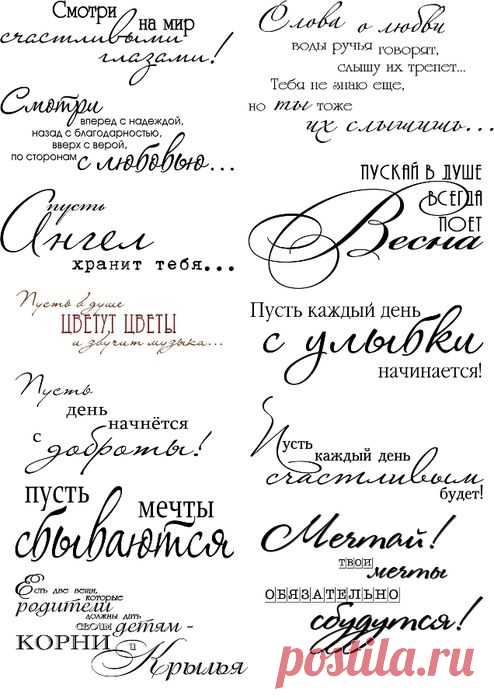 Смотри
на мир
счастливыми
глазами!
Смотри
вперед с надеждой,
назад с благодарностью,
вверх с верой,
по сторонам
с любовью...
пусть
Ангел
хранит тебя...
Пусть в душе
ЦВЕТУТ ЦВЕТЫ
и звучит музыка...
Пусть
день
начнётся
с
доброты!
пусть
мечты
сбываются
Есть две вещи,
которые
родители
должны дать
своим детям -
КОРНИ
и
Крылья
Слова о любви
воды ручья говорят,
слышу их трепет...
Тебя не знаю еще,
но ты тоже
их слышишь...
ПУСКАЙ В ДУШЕ
ВСЕГДА
ПОЕТ
Весна
Пусть каждый день
с улыбки
начинается!
Пусть
каждый день
счастливым
будет!
Мечтай!
ТВОИ
мечты
ОБЯЗАТЕЛЬНО
сбудутся!
postila.ru